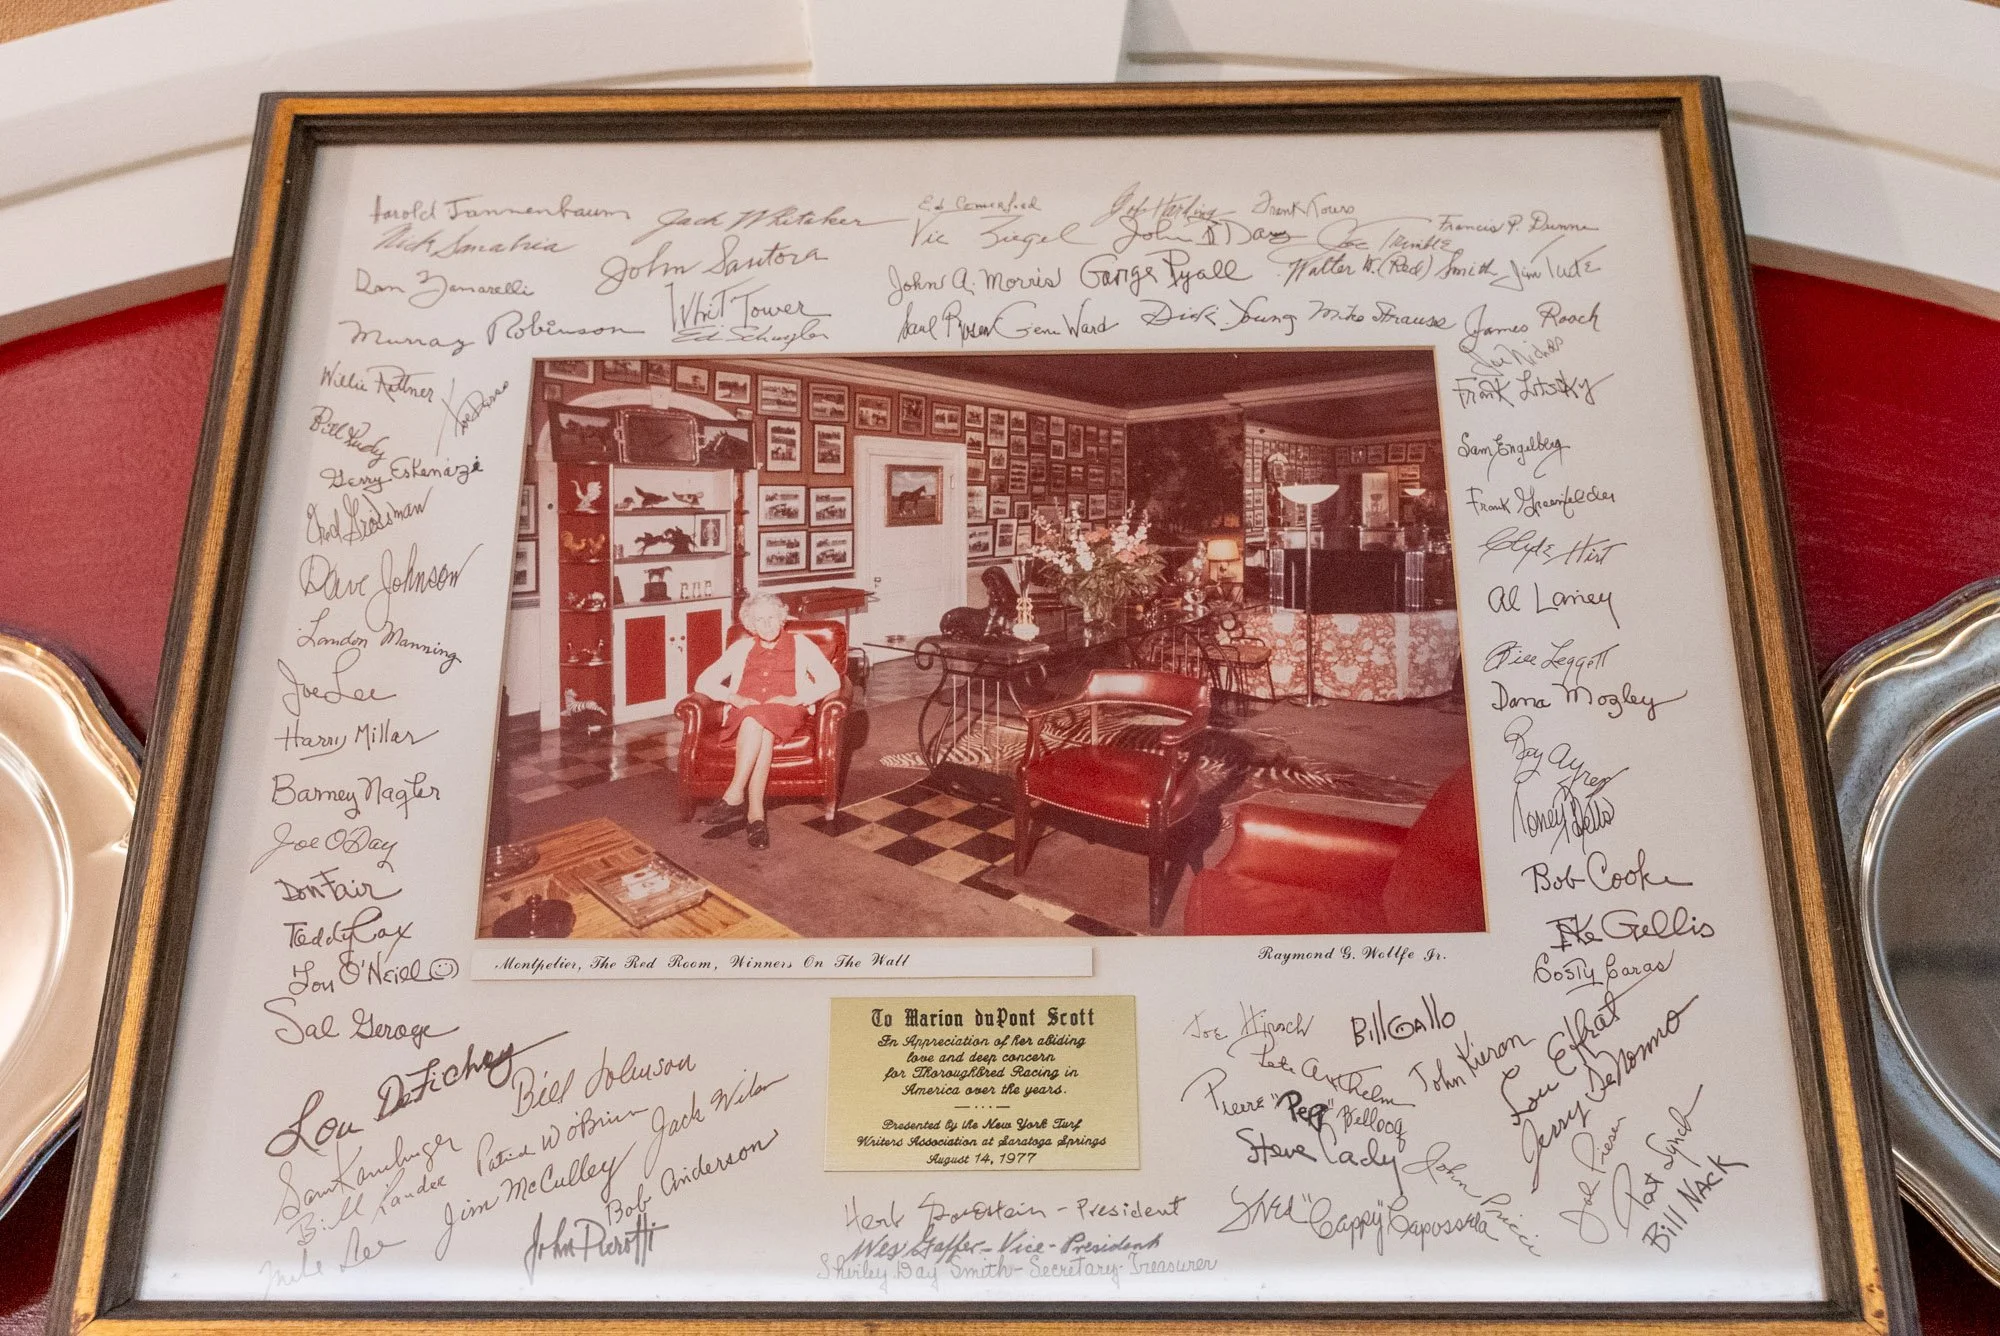 Harold Tannenbaum
Jack Whitaker
Ed Comerford
Frank Touro
Francis P. Dunne
Nick Smabria
John Santora
Vic Ziegel
John Day
Joe Trimble
Dan Zanarelli
Whit Tower
John A. Morris
George Ryall
Walter W. (Red) Smith
Jim Tuite
Murray Robinson
Ed Schuyler
Saul Rosen
Gene Ward
Dick Young
Mike Strauss
James Roach
Joe Nichols
Willie Rattner
Frank Litsky
Bill Rudy
Sam Engelberg
Gerry Eskenazi
Frank Greenfelder
Grossman
Clyde Hirt
Dave Johnson
Al Laney
Landon Manning
Bill Leggett
Joe Lee
Dana Mozley
Harry Millar
Ray Ayres
Barney Nagler
Toney Betts
Joe O'Day
Bob Cooke
Don Fair
Ike Gellis
Teddy Cox
Costy Caras
Lou O'Neill
Sal Gerage
Montpelier, The Red Room, Winners On The Wall
Raymond G. Wolfe Jr.
To Marion duPont Scott
In Appreciation of her abiding
love and deep concern
for Thoroughbred Racing in
America over the years.
Presented by the New York Turf
Writers Association at Saratoga Springs
August 14, 1977
Lou DeFichy
Bill Johnson
Sam Kanchuger
Patrick W O'Brien
Jack Wilson
Bill Lauder
Jim McCulley
Bob Anderson
Mike Lee
John Pierotti
Joe Hirsch
Bill Gallo
Pete Axthelm
John Kieran
Lou Effrat
Jerry DeNonno
Pierre "Peg" Bellocq
Steve Cady
John Pricci
Pat Lynch
Bill Nack
Fred "Cappy" Capossela
Herb Goldstein - President
Wes Gaffer - Vice-President
Shirley Day Smith - Secretary-Treasurer